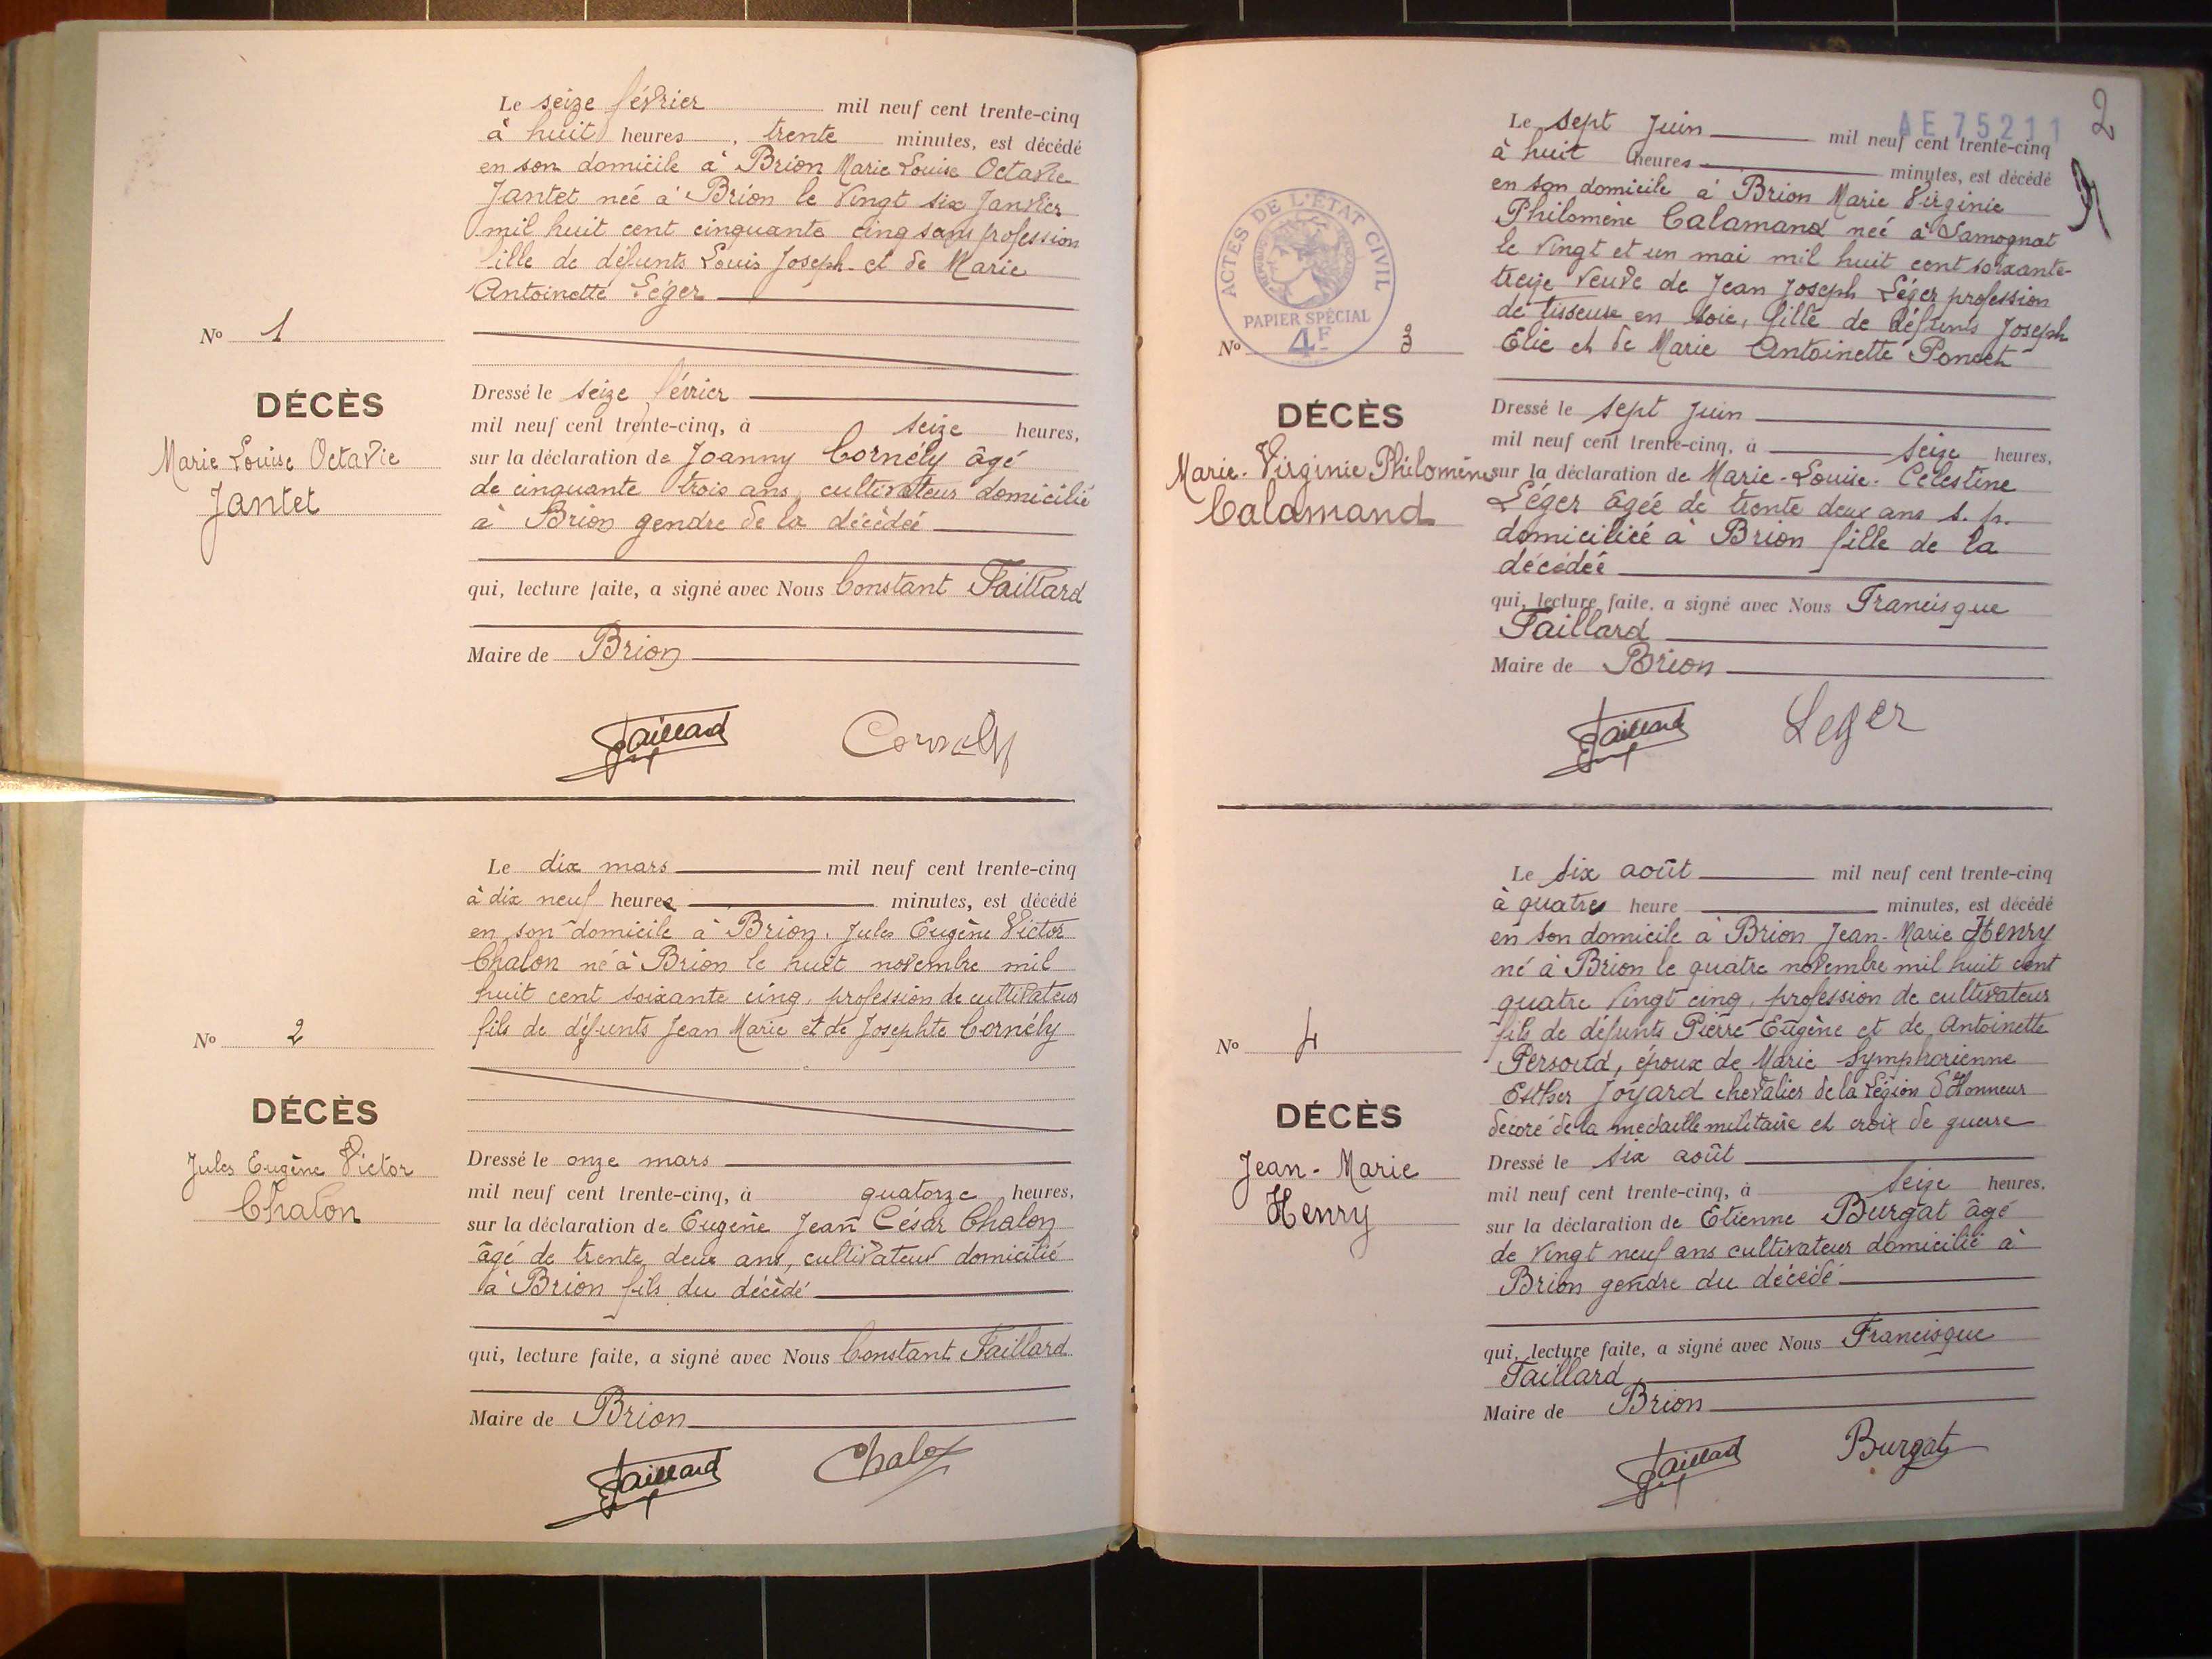 Le seize février mil neuf cent trente-cinq
à huit heures, trente minutes, est décédé
en son domicile à Brion Marie Louise Octavie
Jantet née à Brion le vingt six Janvier
mil huit cent cinquante cinq sans profession
fille de défunts Louis Joseph et de Marie
Antoinette Léger
No 1
DÉCÈS
Marie Louise Octavie
Jantet
Dressé le seize février
mil neuf cent trente-cinq, à seize heures,
sur la déclaration de Joanny Cornély âgé
de cinquante trois ans, cultivateur domicilié
à Brion gendre de la décédée
qui, lecture faite, a signé avec Nous Constant Taillard
Maire de Brion
Taillard Cornély
Le dix mars mil neuf cent trente-cinq
à dix neuf heures minutes, est décédé
en son domicile à Brion. Jules Eugène Victor
Chalon né à Brion le huit novembre mil
huit cent soixante cinq, profession de cultivateur
fils de défunts Jean Marie et de Josephte Cornély
No 2
DÉCÈS
Jules Eugène Victor
Chalon
Dressé le onze mars
mil neuf cent trente-cinq, à quatorze heures,
sur la déclaration de Eugène Jean César Chalon
âgé de trente deux ans, cultivateur domicilié
à Brion fils du décédé
qui, lecture faite, a signé avec Nous Constant Taillard
Maire de Brion
Taillard Chalon
2
AE 75211
Le sept Juin mil neuf cent trente-cinq
à huit heures minutes, est décédé
en son domicile à Brion Marie Virginie
Philomène Calamand née à Samognat
le vingt et un mai mil huit cent soixante-
treize veuve de Jean Joseph Léger profession
de tisseuse en soie, fille de défunts Joseph
Elie et de Marie Antoinette Poncet
ACTES DE L'ÉTAT CIVIL
PAPIER SPÉCIAL
4F
No 3
DÉCÈS
Marie-Virginie Philomène
Calamand
Dressé le sept Juin
mil neuf cent trente-cinq, à seize heures,
sur la déclaration de Marie-Louise-Célestine
Léger âgée de trente deux ans s. p.
domiciliée à Brion fille de la
décédée
qui, lecture faite, a signé avec Nous Francisque
Taillard
Maire de Brion
Taillard Leger
Le six août mil neuf cent trente-cinq
à quatres heure minutes, est décédé
en son domicile à Brion Jean-Marie Henry
né à Brion le quatre novembre mil huit cent
quatre vingt cinq, profession de cultivateur
fils de défunts Pierre Eugène et de Antoinette
Persoud, époux de Marie Symphorienne
Esther Joyard chevalier de la Légion d'Honneur
décoré de la medaille militaire et croix de guerre
No 4
DÉCÈS
Jean-Marie
Henry
Dressé le six août
mil neuf cent trente-cinq, à seize heures,
sur la déclaration de Etienne Burgat âgé
de vingt neuf ans cultivateur domicilié à
Brion gendre du décédé
qui, lecture faite, a signé avec Nous Francisque
Taillard
Maire de Brion
Taillard Burgat